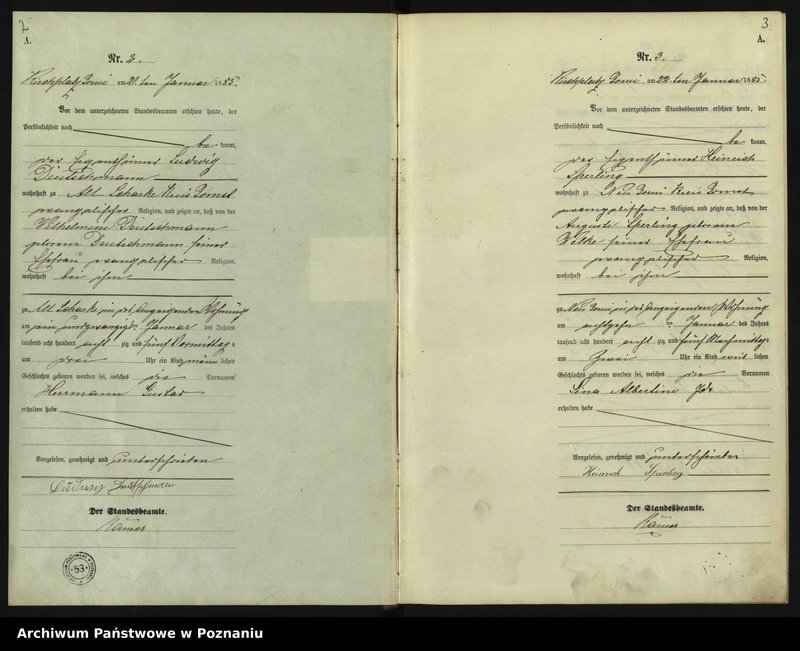 2
A.
Nr. 2.
Kirchplatz Borui am 21. ten Januar 1885.
Vor dem unterzeichneten Standesbeamten erschien heute, der
Persönlichkeit nach
be kannt,
der Eigenthümer Ludwig
Deutschmann
wohnhaft zu Alt Scharke Kreis Bomst
evangelischer Religion, und zeigte an, daß von der
Wilhelmine Deutschmann
geborene Deutschmann seiner
Ehefrau evangelischer Religion,
wohnhaft bei ihm
zu Alt Scharke in des Anzeigenden Wohnung
am ein und zwanzig ten Januar des Jahres
tausend acht hundert acht zig und fünf Vormittags
um drei Uhr ein Kind männ lichen
Geschlechts geboren worden sei, welches die Vornamen
Herrmann Gustav
erhalten habe
Vorgelesen, genehmigt und unterschrieben
Ludwig Deutschmann
Der Standesbeamte.
53
3
A.
Nr. 3.
Kirchplatz Borui am 22. ten Januar 1885.
Vor dem unterzeichneten Standesbeamten erschien heute, der
Persönlichkeit nach
be kannt,
der Eigenthümer Heinrich
Sperling
wohnhaft zu Neu Borui Kreis Bomst
evangelischer Religion, und zeigte an, daß von der
Auguste Sperling geborene
Wilke seiner Ehefrau
evangelischer Religion,
wohnhaft bei ihm
zu Neu Borui in des Anzeigenden Wohnung
am achtzehn ten Januar des Jahres
tausend acht hundert acht zig und fünf Nachmittags
um Zwei Uhr ein Kind weib lichen
Geschlechts geboren worden sei, welches die Vornamen
Lina Albertine Ida
erhalten habe
Vorgelesen, genehmigt und unterschrieben
Heinrich Sperling
Der Standesbeamte.
Archiwum Państwowe w Poznaniu